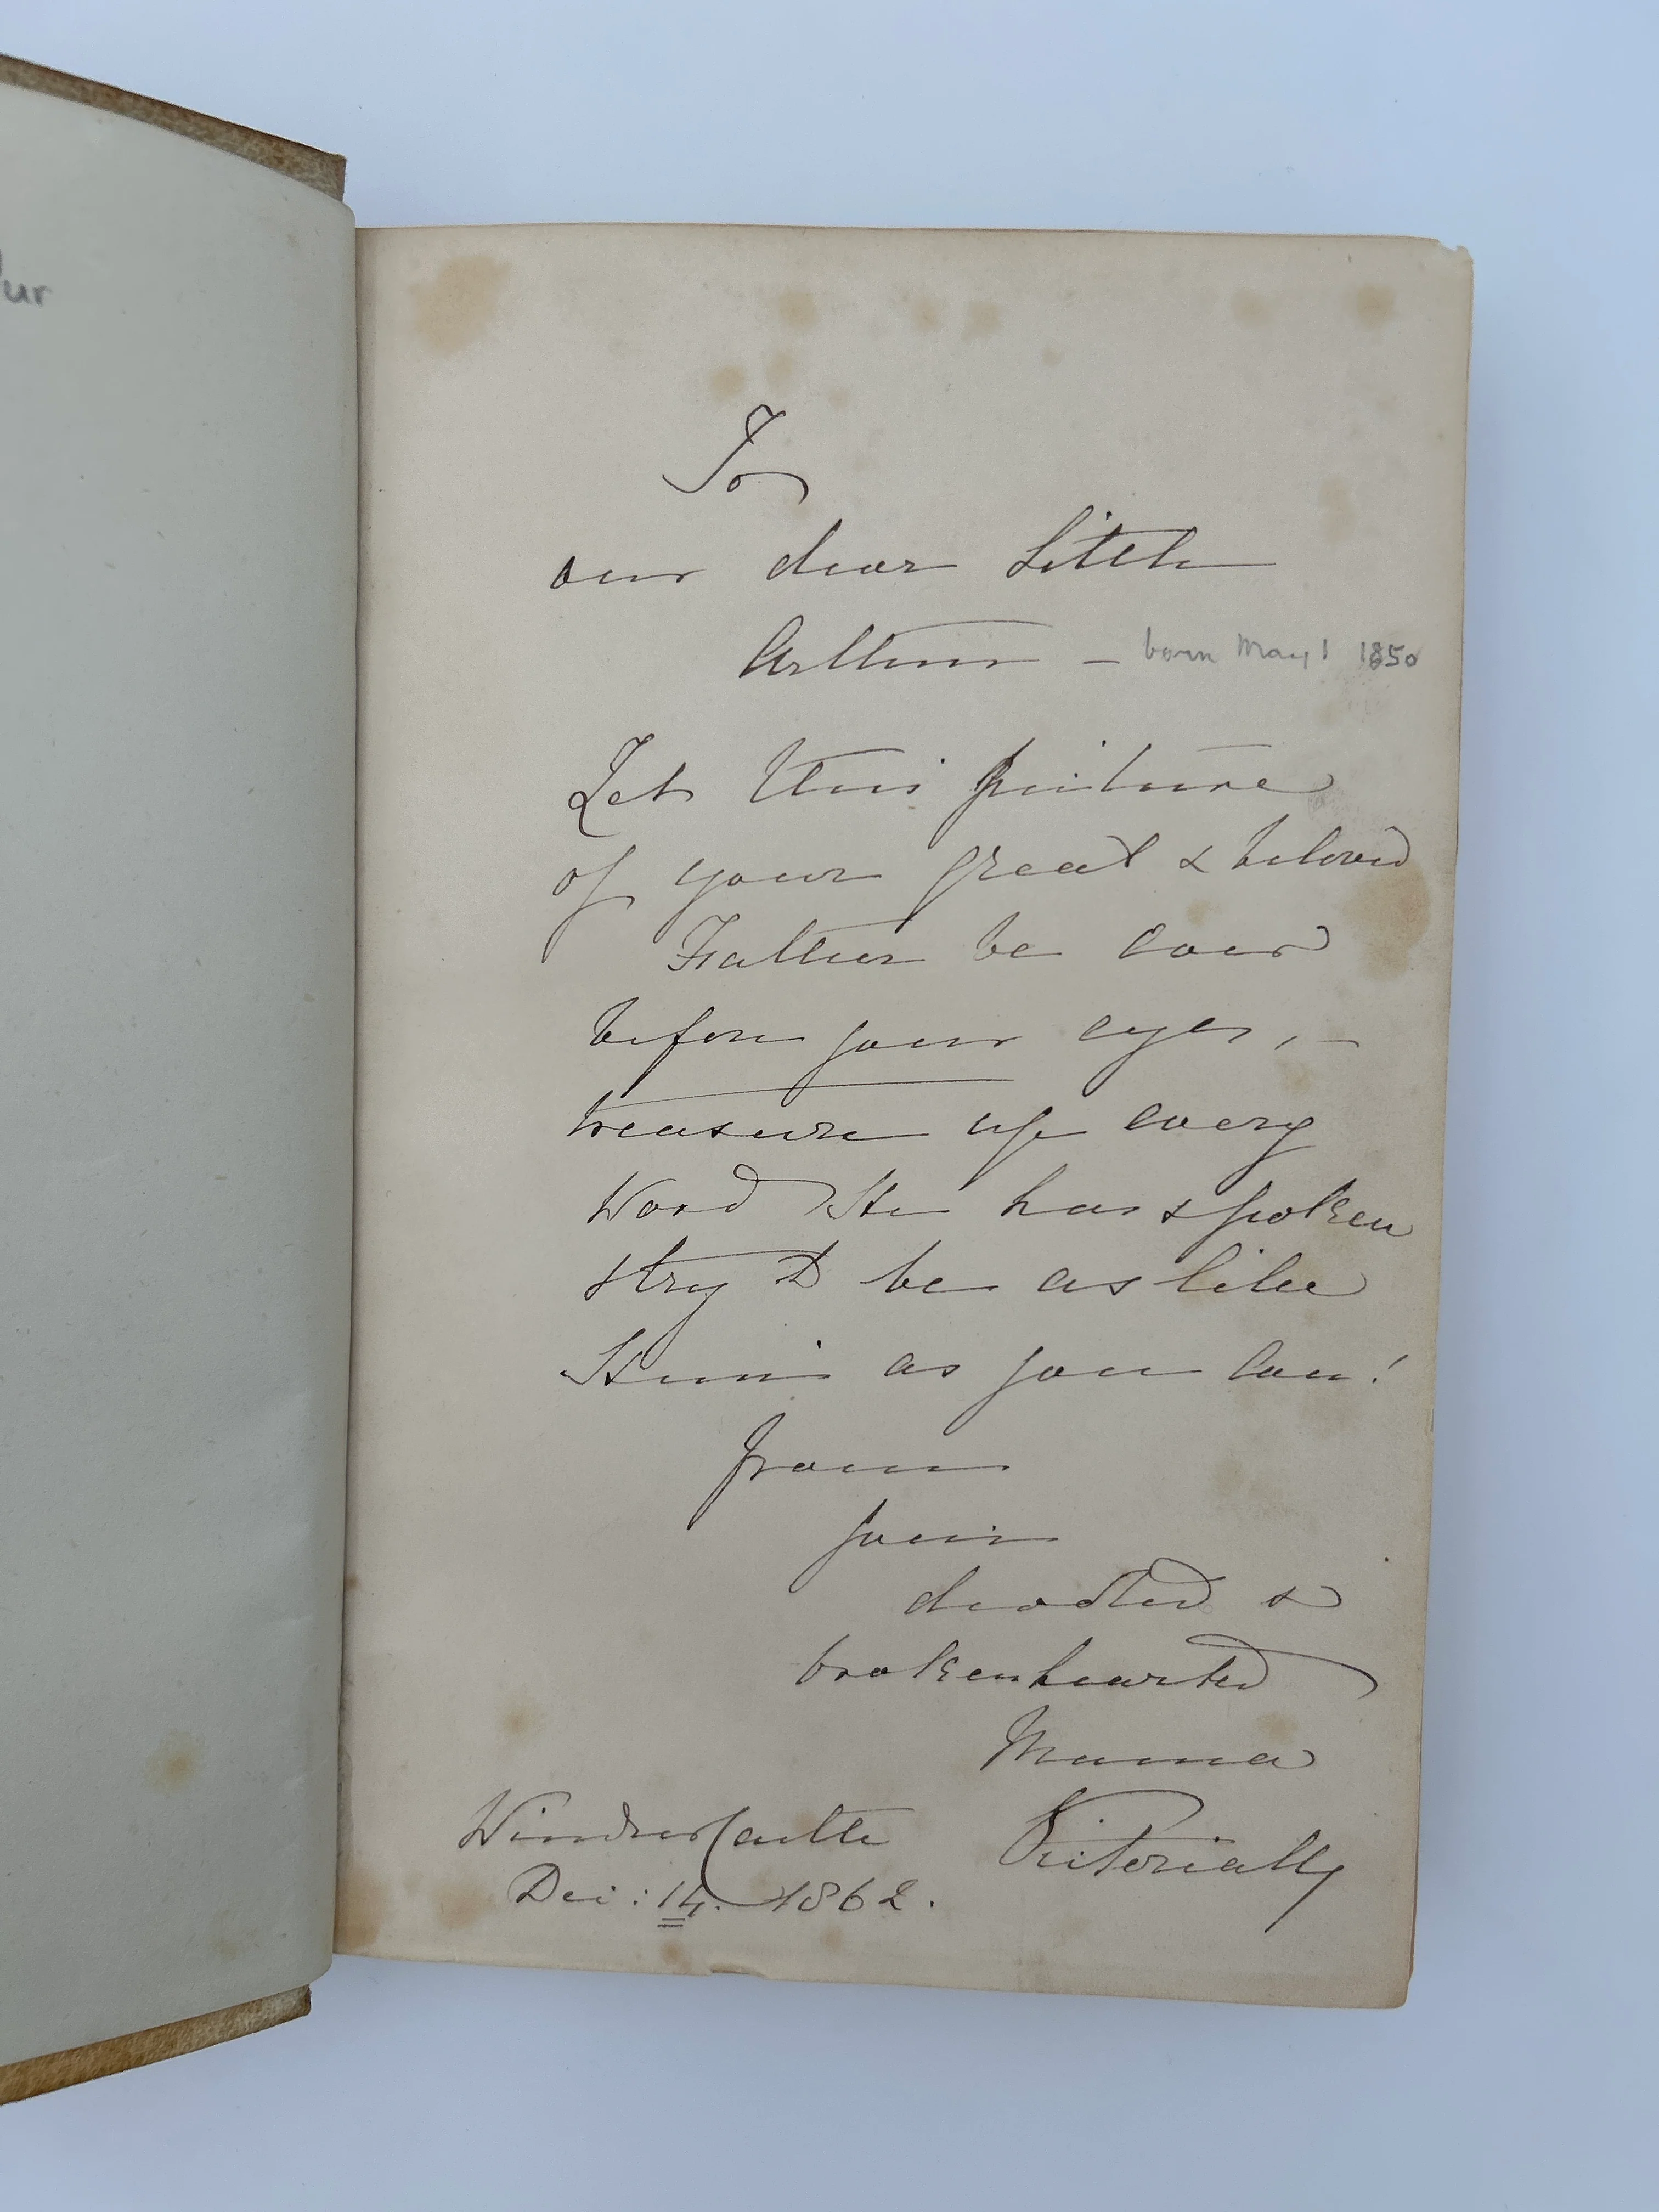 ur
To
our dear little
Arthur – born May 1 1850
Let this picture
of your great & beloved
Father be ever
before your eyes, –
treasure up every
Word He has spoken
& try to be as like
Him as you can!
From
your
devoted &
brokenhearted
Mama
Windsor Castle Victoria R
Dec: 14. 1862.